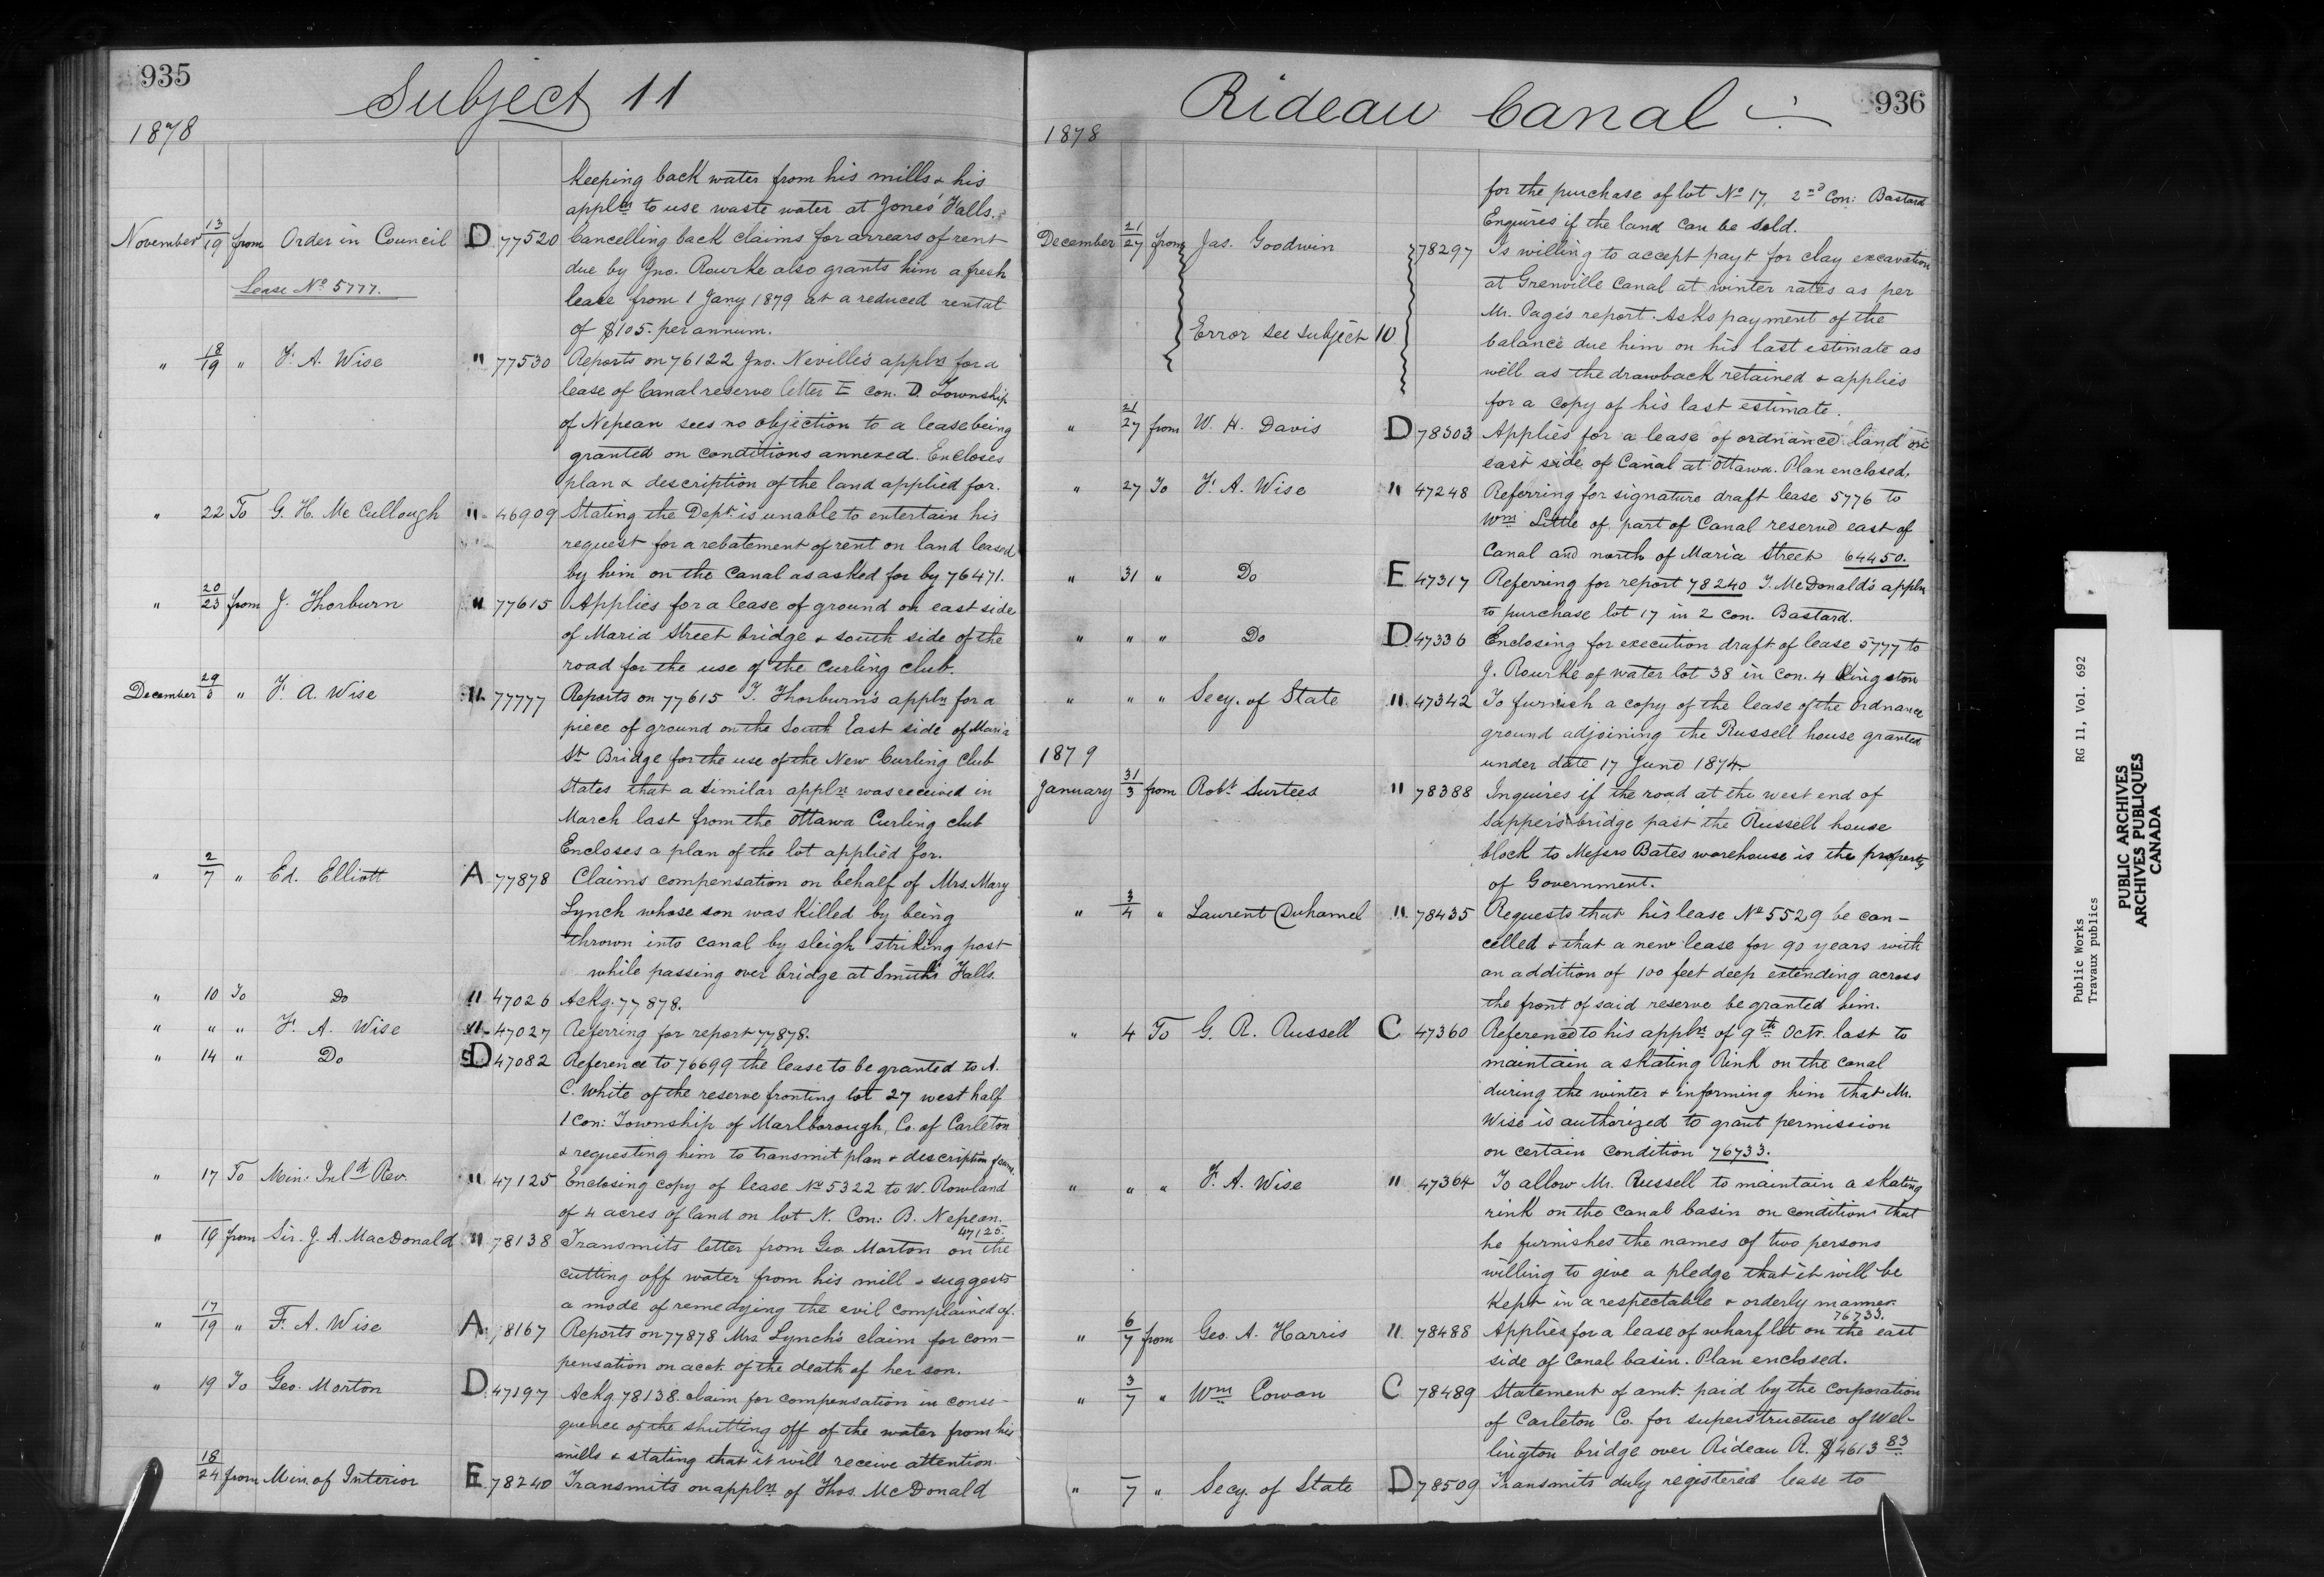 935
Subject 11
1878
keeping back water from his mills & his
appln to use waste water at Jones' Falls.
November 13/19 from Order in Council D 77520 Cancelling back claims for arrears of rent
due by Jno. Rourke also grants him a fresh
Lease No 5777. lease from 1 Jany 1879 at a reduced rental
of $105. per annum.
" 18/19 " F. A. Wise " 77530 Reports on 76122 Jno. Neville's appln for a
lease of Canal reserve letter E con. D. Township
of Nepean sees no objection to a lease being
granted on conditions annexed. Encloses
plan & description of the land applied for.
" 22 To G. H. McCullough " 46909 Stating the Dept. is unable to entertain his
request for a rebatement of rent on land leased
by him on the Canal as asked for by 76471.
" 20/23 from J. Thorburn " 77615 Applies for a lease of ground on east side
of Maria Street bridge & south side of the
road for the use of the Curling club.
December 29/3 " F. A. Wise " 77777 Reports on 77615 T. Thorburn's appln for a
piece of ground on the South East side of Maria
St Bridge for the use of the New Curling Club
States that a similar appln was received in
March last from the Ottawa Curling club
Encloses a plan of the lot applied for.
" 2/7 " Ed. Elliott A 77878 Claims compensation on behalf of Mrs. Mary
Lynch whose son was killed by being
thrown into canal by sleigh striking post
while passing over bridge at Smiths Falls.
" 10 To Do " 47026 Ackg. 77878.
" " " F. A. Wise " 47027 Referring for report 77878.
" 14 " Do D 47082 Reference to 76699 the lease to be granted to A.
C. White of the reserve fronting lot 27 west half
1 Con: Township of Marlborough, Co. of Carleton
& requesting him to transmit plan & description of same.
" 17 To Min. Inld Rev. " 47125 Enclosing copy of lease No 5322 to W. Rowland
of 4 acres of land on lot N. Con: B. Nepean.
47125.
" 19 from Sir. J. A. MacDonald " 78138 Transmits letter from Geo Morton on the
cutting off water from his mill & suggests
a mode of remedying the evil complained of.
" 17/19 " F. A. Wise A 78167 Reports on 77878 Mrs Lynch's claim for com-
pensation on acct. of the death of her son.
" 19 To Geo. Morton D 47197 Ackg 78138. claim for compensation in conse-
quence of the shutting off of the water from his
mills & stating that it will receive attention.
18/24 from Min. of Interior E 78240 Transmits an appln of Thos. McDonald
Rideau Canal
936
1878
for the purchase of lot No 17, 2nd Con: Bastard
Enquires if the land can be sold.
December 21/27 from Jas. Goodwin 78297 Is willing to accept payt for clay excavation
at Grenville Canal at winter rates as per
Mr. Page's report. Asks payment of the
Error see subject 10 balance due him on his last estimate as
well as the drawback retained & applies
for a copy of his last estimate.
" 21/27 from W. H. Davis D 78303 Applies for a lease of ordnance land on
east side of Canal at Ottawa. Plan enclosed.
" 27 To F. A. Wise " 47248 Referring for signature draft lease 5776 to
Wm Little of part of Canal reserve east of
Canal and north of Maria Street 64450.
" 31 " Do E 47317 Referring for report 78240 T. McDonald's appln
to purchase lot 17 in 2 con. Bastard.
" " " Do D 47336 Enclosing for execution draft of lease 5777 to
J. Rourke of water lot 38 in con. 4 Kingston
" " " Secy. of State " 47342 To furnish a copy of the lease of the Ordnance
ground adjoining the Russell house granted
under date 17 June 1874.
1879
January 31/3 from Robt. Surtees " 78388 Inquires if the road at the west end of
Sappers bridge past the Russell house
block to Messrs Bates warehouse is the property
of Government.
" 3/4 " Laurent Duhamel " 78435 Requests that his lease No 5529 be can-
celled & that a new lease for 90 years with
an addition of 100 feet deep extending across
the front of said reserve be granted him.
" 4 To G. R. Russell C 47360 Reference to his appln of 9th Octr. last to
maintain a skating Rink on the canal
during the winter & informing him that Mr.
Wise is authorized to grant permission
on certain condition 76733.
" " " F. A. Wise " 47364 To allow Mr. Russell to maintain a skating
rink on the canal basin on condition that
he furnishes the names of two persons
willing to give a pledge that it will be
kept in a respectable & orderly manner.
76733.
" 6/7 from Geo. A. Harris " 78488 Applies for a lease of wharf lot on the east
side of Canal basin. Plan enclosed.
" 3/7 " Wm Cowan C 78489 Statement of amt. paid by the Corporation
of Carleton Co. for superstructure of Wel-
lington bridge over Rideau R. $4613 83
" 7 " Secy. of State D 78509 Transmits duly registered lease to
Public Works
Travaux publics
RG 11, Vol. 692
PUBLIC ARCHIVES
ARCHIVES PUBLIQUES
CANADA